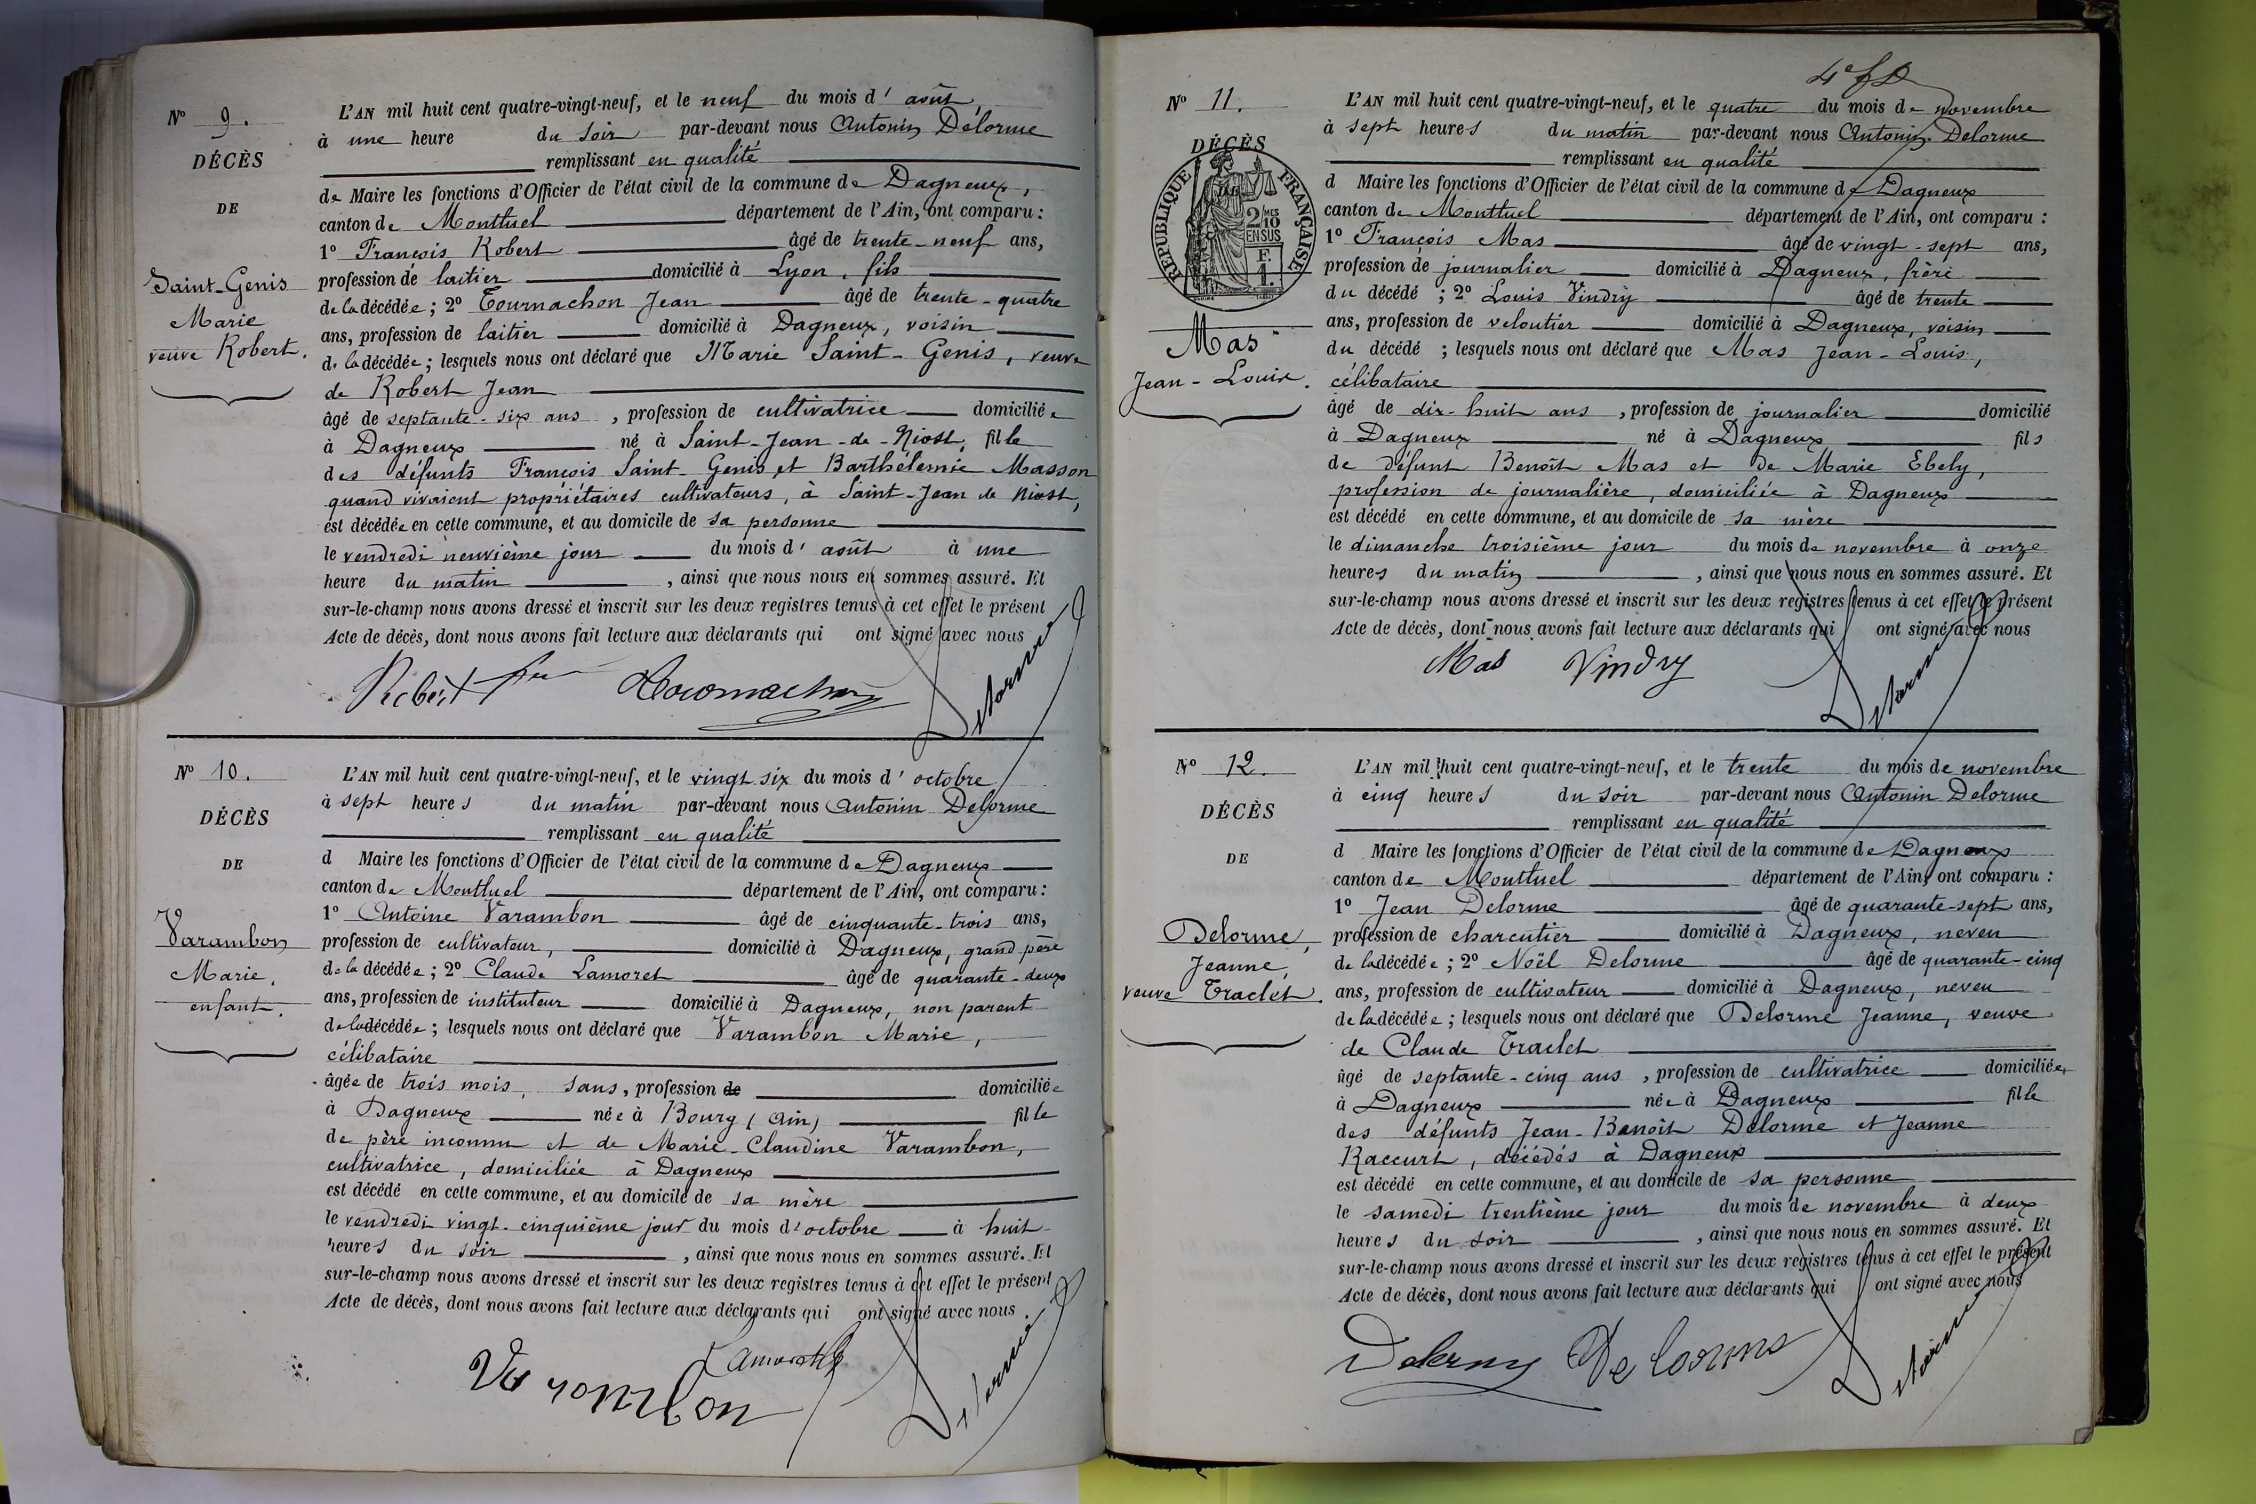 N° 9.
DÉCÈS
DE
Saint-Genis
Marie
veuve Robert.
L'AN mil huit cent quatre-vingt-neuf, et le neuf du mois d' août,
à une heure du soir par-devant nous Antonin Delorme
remplissant en qualité
de Maire les fonctions d'Officier de l'état civil de la commune de Dagneux,
canton de Montluel département de l'Ain, ont comparu :
1° François Robert âgé de trente-neuf ans,
profession de laitier domicilié à Lyon, fils
de la décédée ; 2° Tournachon Jean âgé de trente-quatre
ans, profession de laitier domicilié à Dagneux, voisin
de la décédée ; lesquels nous ont déclaré que Marie Saint-Genis, veuve
de Robert Jean
âgé de septante-six ans, profession de cultivatrice domiciliée
à Dagneux né à Saint-Jean-de-Niost, fille
des défunts François Saint-Genis et Barthélemie Masson
quand vivaient propriétaires cultivateurs, à Saint-Jean de Niost,
est décédée en cette commune, et au domicile de sa personne
le vendredi neuvième jour du mois d' août à une
heure du matin, ainsi que nous nous en sommes assuré. Et
sur-le-champ nous avons dressé et inscrit sur les deux registres tenus à cet effet le présent
Acte de décès, dont nous avons fait lecture aux déclarants qui ont signé avec nous
Robert Tournachon Delorme
N° 10.
DÉCÈS
DE
Varambon
Marie.
enfant.
L'AN mil huit cent quatre-vingt-neuf, et le vingt six du mois d' octobre
à sept heures du matin par-devant nous Antonin Delorme
remplissant en qualité
d Maire les fonctions d'Officier de l'état civil de la commune de Dagneux
canton de Montluel département de l'Ain, ont comparu :
1° Antoine Varambon âgé de cinquante-trois ans,
profession de cultivateur, domicilié à Dagneux, grand père
de la décédée ; 2° Claude Lamoret âgé de quarante-deux
ans, profession de instituteur domicilié à Dagneux, non parent
de la décédée ; lesquels nous ont déclaré que Varambon Marie,
célibataire
âgée de trois mois, sans, profession de domiciliée
à Dagneux née à Bourg (Ain) fille
de père inconnu et de Marie-Claudine Varambon,
cultivatrice, domiciliée à Dagneux
est décédé en cette commune, et au domicile de sa mère
le vendredi vingt-cinquième jour du mois d'octobre à huit
heures du soir, ainsi que nous nous en sommes assuré. Et
sur-le-champ nous avons dressé et inscrit sur les deux registres tenus à cet effet le présent
Acte de décès, dont nous avons fait lecture aux déclarants qui ont signé avec nous.
Varombon Delorme
N° 11.
DÉCÈS
RÉPUBLIQUE FRANÇAISE
2/MES
10
EN SUS
F.
1.
Mas
Jean-Louis.
L'AN mil huit cent quatre-vingt-neuf, et le quatre du mois de novembre
à sept heures du matin par-devant nous Antonin Delorme
remplissant en qualité
d Maire les fonctions d'Officier de l'état civil de la commune de Dagneux
canton de Montluel département de l'Ain, ont comparu :
1° François Mas âgé de vingt-sept ans,
profession de journalier domicilié à Dagneux, frère
du décédé ; 2° Louis Vindry âgé de trente
ans, profession de veloutier domicilié à Dagneux, voisin
du décédé ; lesquels nous ont déclaré que Mas Jean-Louis,
célibataire
âgé de dix-huit ans, profession de journalier domicilié
à Dagneux né à Dagneux fils
de défunt Benoît Mas et de Marie Ebely,
profession de journalière, domiciliée à Dagneux
est décédé en cette commune, et au domicile de sa mère
le dimanche troisième jour du mois de novembre à onze
heures du matin, ainsi que nous nous en sommes assuré. Et
sur-le-champ nous avons dressé et inscrit sur les deux registres tenus à cet effet le présent
Acte de décès, dont nous avons fait lecture aux déclarants qui ont signé avec nous
Mas Vindry Delorme
N° 12.
DÉCÈS
DE
Delorme,
Jeanne,
veuve Traclet.
L'AN mil huit cent quatre-vingt-neuf, et le trente du mois de novembre
à cinq heures du soir par-devant nous Antonin Delorme
remplissant en qualité
d Maire les fonctions d'Officier de l'état civil de la commune de Dagneux
canton de Montluel département de l'Ain, ont comparu :
1° Jean Delorme âgé de quarante-sept ans,
profession de charcutier domicilié à Dagneux, neveu
de la décédée ; 2° Noël Delorme âgé de quarante-cinq
ans, profession de cultivateur domicilié à Dagneux, neveu
de la décédée ; lesquels nous ont déclaré que Delorme Jeanne, veuve
de Claude Traclet
âgé de septante-cinq ans, profession de cultivatrice domiciliée
à Dagneux née à Dagneux fille
des défunts Jean-Benoît Delorme et Jeanne
Raccurt, décédés à Dagneux
est décédé en cette commune, et au domicile de sa personne
le samedi trentième jour du mois de novembre à deux
heures du soir, ainsi que nous nous en sommes assuré. Et
sur-le-champ nous avons dressé et inscrit sur les deux registres tenus à cet effet le présent
Acte de décès, dont nous avons fait lecture aux déclarants qui ont signé avec nous
Delorme Delorme Delorme